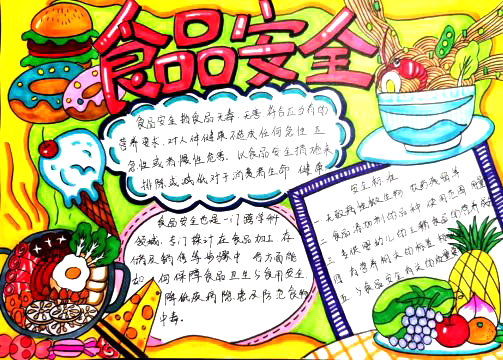 食品安全
食品安全指食品无毒、无害、符合应当有的
营养要求,对人体健康不造成任何急性亚
急性或者慢性危害。以食品安全措施来
排除或减低对于消费者生命健康
食品安全也是一门跨学科
领域,专门探讨在食品加工存
储及销售等步骤中
何保障食品卫生与食用安全
降低疾病隐患及防范食物
中毒。
安全标准
一
二 食品添加剂的品种 使用范围 用量
三 专供婴幼儿的主辅食品的营养
四
五 与食品安全有关的质量要